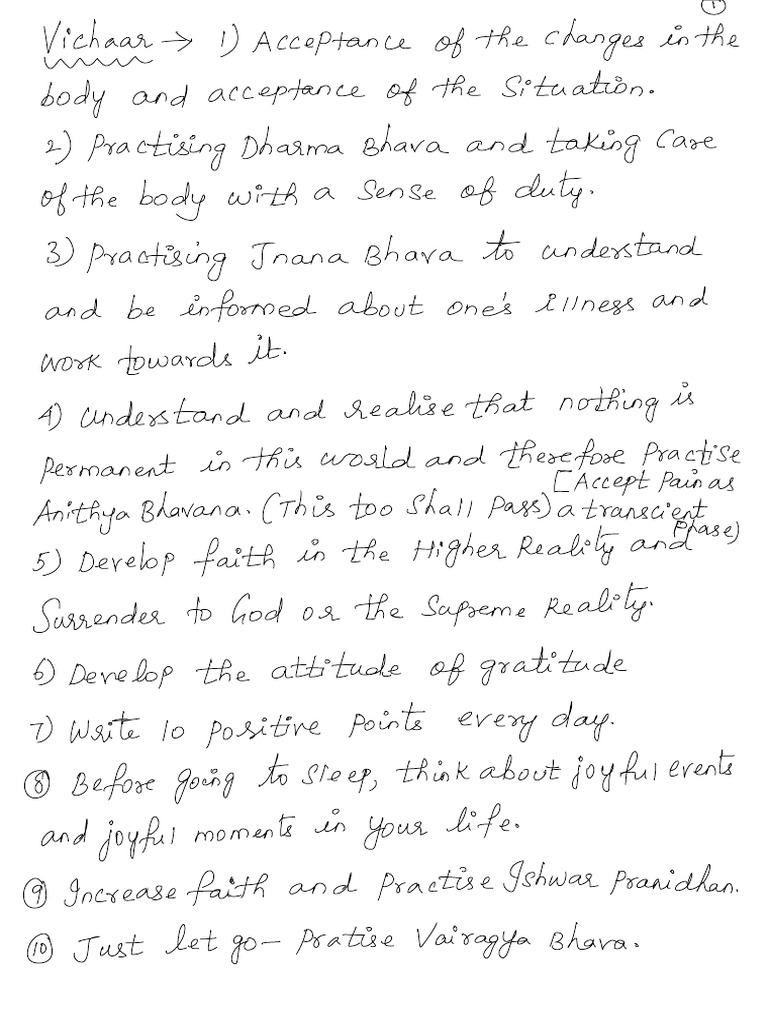 ①
Vichaar → 1) Acceptance of the changes in the
body and acceptance of the Situation.
2) Practising Dharma Bhava and taking Care
of the body with a sense of duty.
3) Practising Jnana Bhava to understand
and be informed about one's illness and
work towards it.
4) Understand and realise that nothing is
permanent in this world and therefore Practise
[Accept Pain as
Anithya Bhavana. (This too Shall Pass) a transcient
Phase)
5) Develop faith in the Higher Reality and
Surrender to God or the Supreme Reality.
6) Develop the attitude of gratitude
7) Write 10 positive points every day.
⑧ Before going to sleep, think about joyful events
and joyful moments in your life.
⑨ Increase faith and Practise Ishwar Pranidhan.
⑩ Just let go - Pratise Vairagya Bhava.